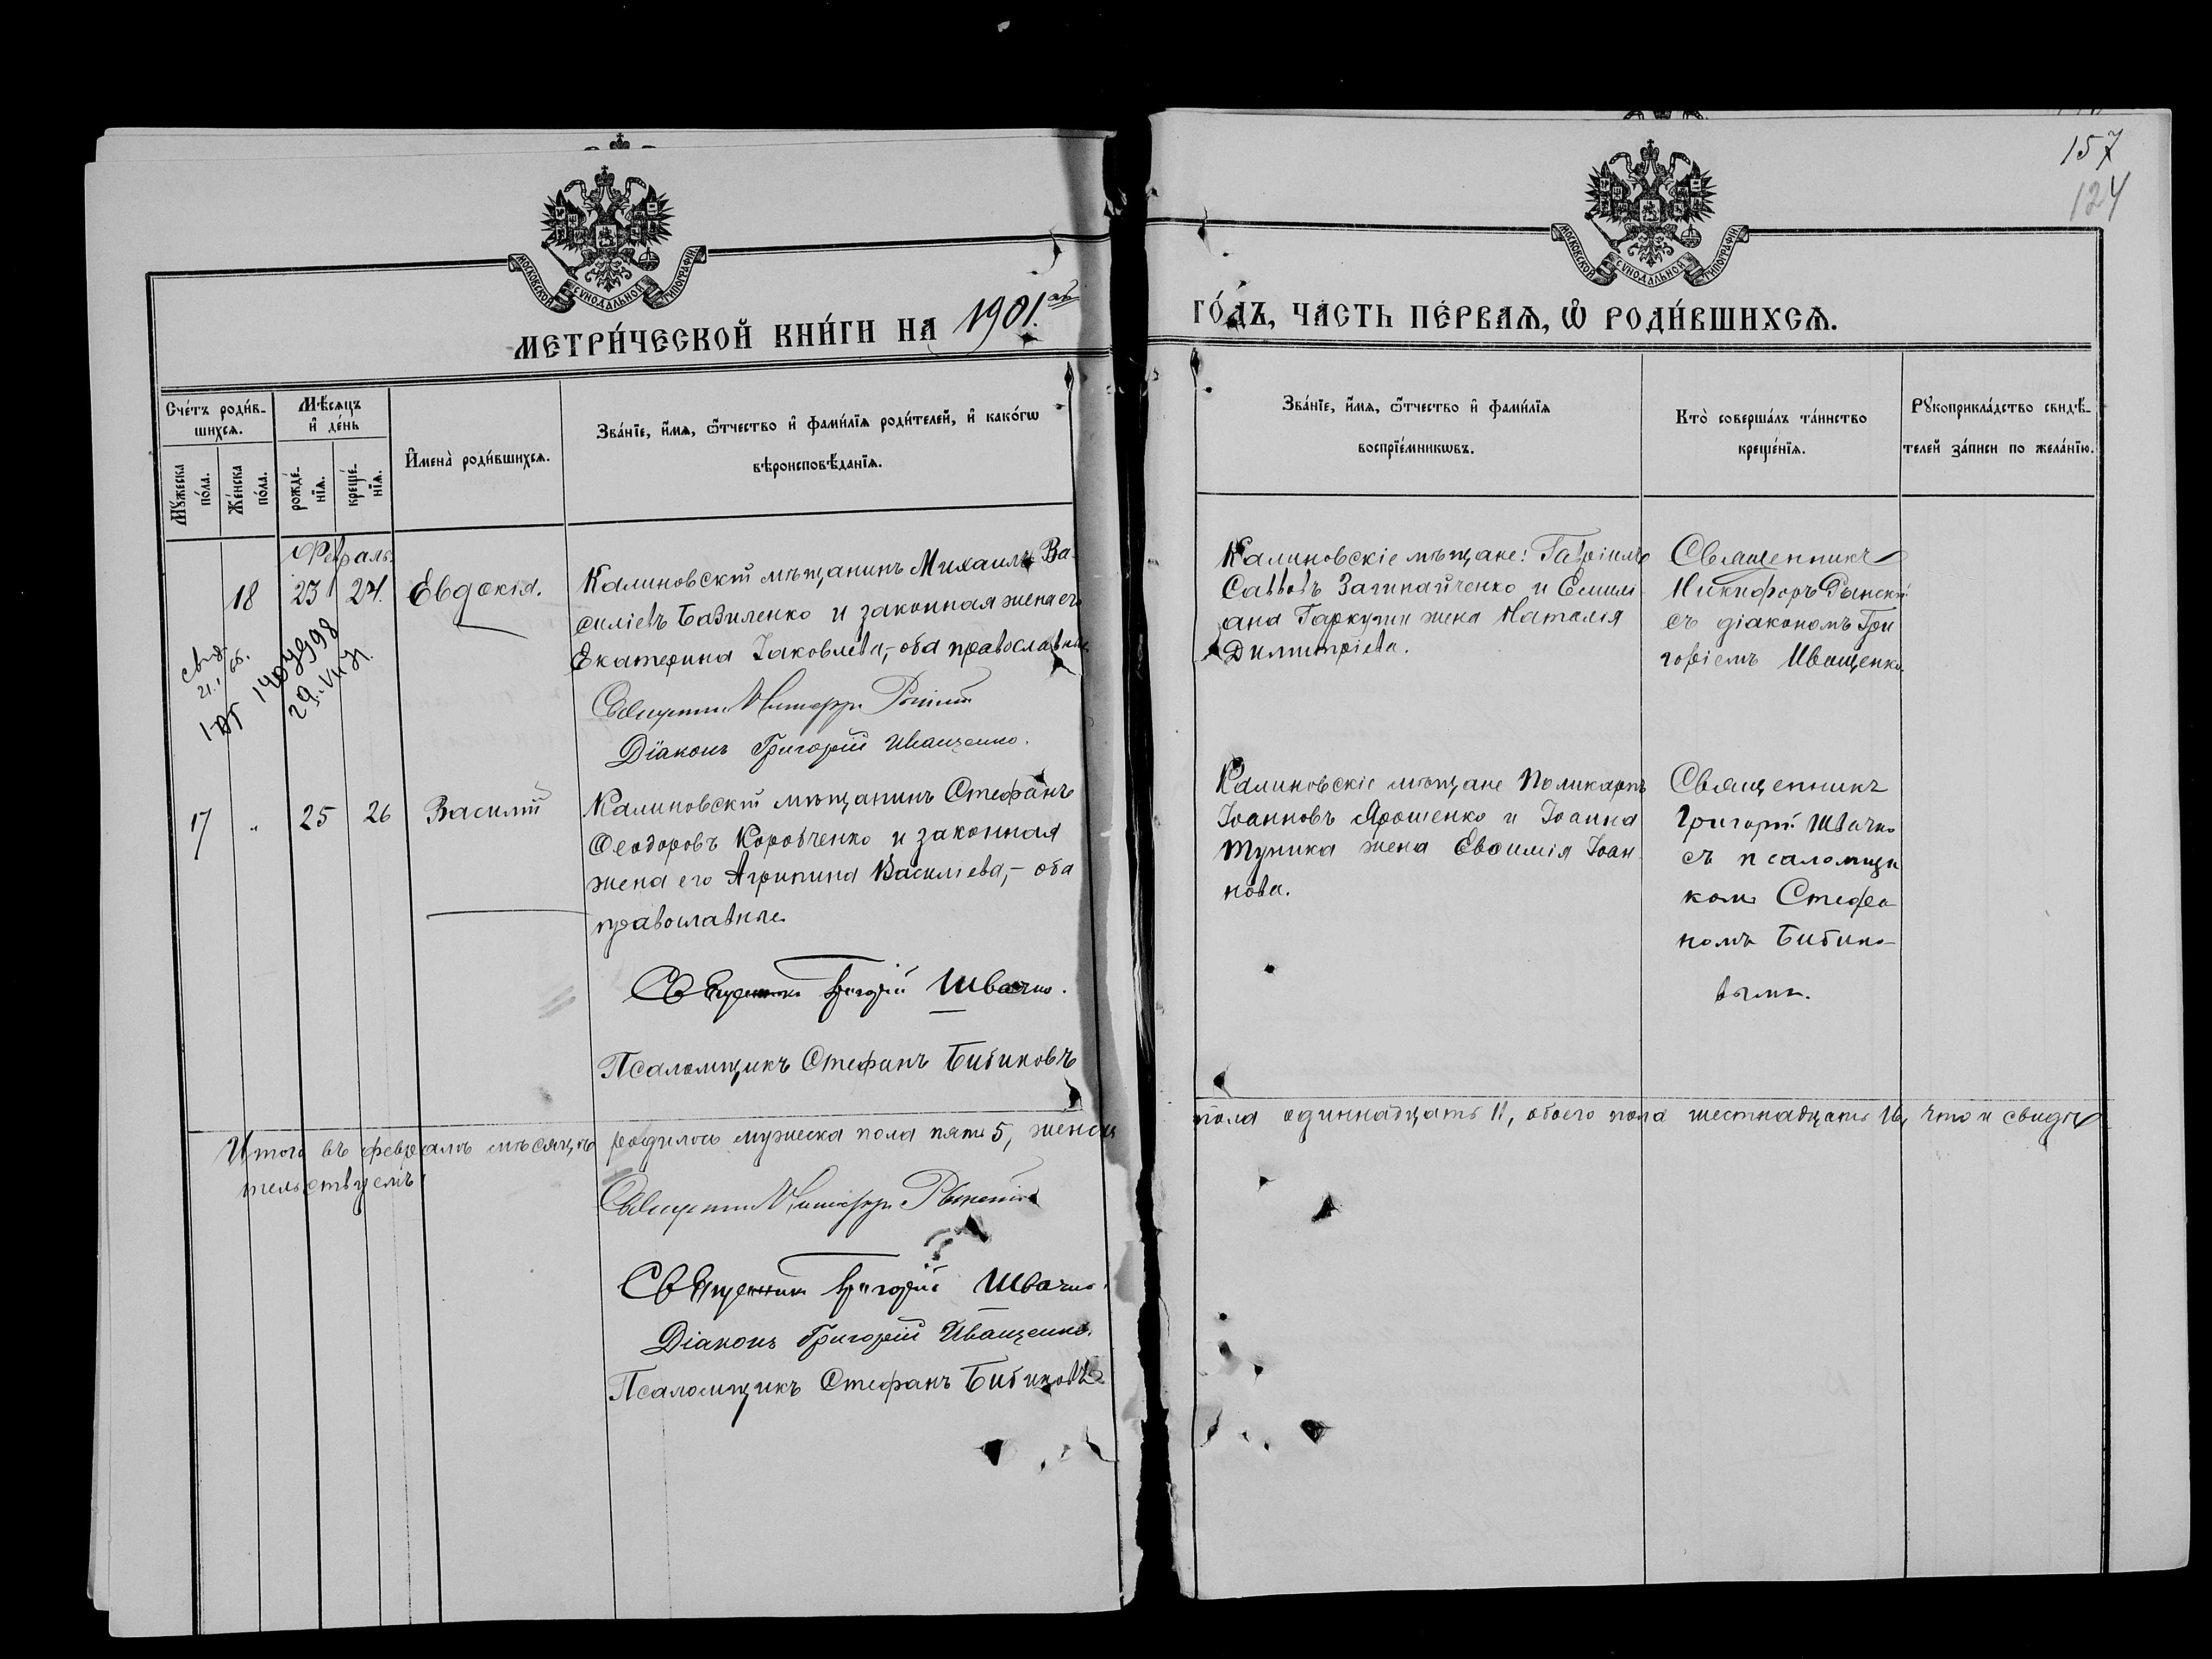 157
124
МОСКОВСКОЙ СѴНОДАЛЬНОЙ ТИПОГРАФІИ
МОСКОВСКОЙ СѴНОДАЛЬНОЙ ТИПОГРАФІИ
МЕТРИ́ЧЕСКОЙ КНИ́ГИ НА 1901.ый
ГО́ДЪ, ЧА́СТЬ ПЕ́РВАѦ, Ѽ РОДИ́ВШИХСѦ.
Сче́тъ роди́в-
шихсѧ.
Мꙋ́жеска
по́ла.
Же́нска
по́ла.
Мѣ́сяцъ
и҆ де́нь
рожде́-
нїѧ.
креще́-
нїѧ.
И҆мена̀ роди́вшихсѧ.
Зва́нїе, и҆́мѧ, ѻ҆́тчество и҆ фами́лїѧ роди́телей, и҆ како́гѡ
вѣроисповѣ́данїѧ.
Зва́нїе, и҆́мѧ, ѻ҆́тчество и҆ фами́лїѧ
воспрїе́мникѡвъ.
Кто̀ соверша́лъ та́инство
креще́нїѧ.
Рꙋкоприкла́дство свидѣ́-
телей за́писи по жела́нїю.
Февраль.
18 23 24. Евдокія.
Калиновскій мѣщанинъ Михаилъ Ва-
силіевъ Бавиленко и законная жена его
Екатерина Іаковлева,- оба православные
Священникъ Никифоръ
Діаконъ Григорій Иващенко.
Калиновскіе мѣщане: Гавріилъ
Савовъ и Емили
ана Гаркуши жена Наталія
Димитріева.
Священникъ
Никифоръ
съ діакономъ Гри
горіемъ Иващенко
свид.
21.1
29.VII.71
17 „ 25 26 Василій
Калиновскій мѣщанинъ Стефанъ
Ѳеодоровъ Коробченко и законная
жена его Агрипина Василіева,- оба
православные
Священникъ Григорій Швачко.
Псаломщикъ Стефанъ Бибиковъ
Калиновскіе мѣщане Поликарпъ
Іоанновъ Ярошенко и Іоанна
жена Евѳимія Іоан
нова.
Священникъ
Григорій Швачко
съ псаломщи
комъ Стефа
номъ Бибико-
вымъ.
Итого въ февралѣ мѣсяцѣ родилось мужеска пола пять 5, женска пола одиннадцать 11, обоего пола шестнадцать 16, что и свидѣ
тельствуемъ:
Священникъ Никифоръ
Священникъ Григорій Швачко.
Діаконъ Григорій Иващенко.
Псаломщикъ Стефанъ Бибиковъ